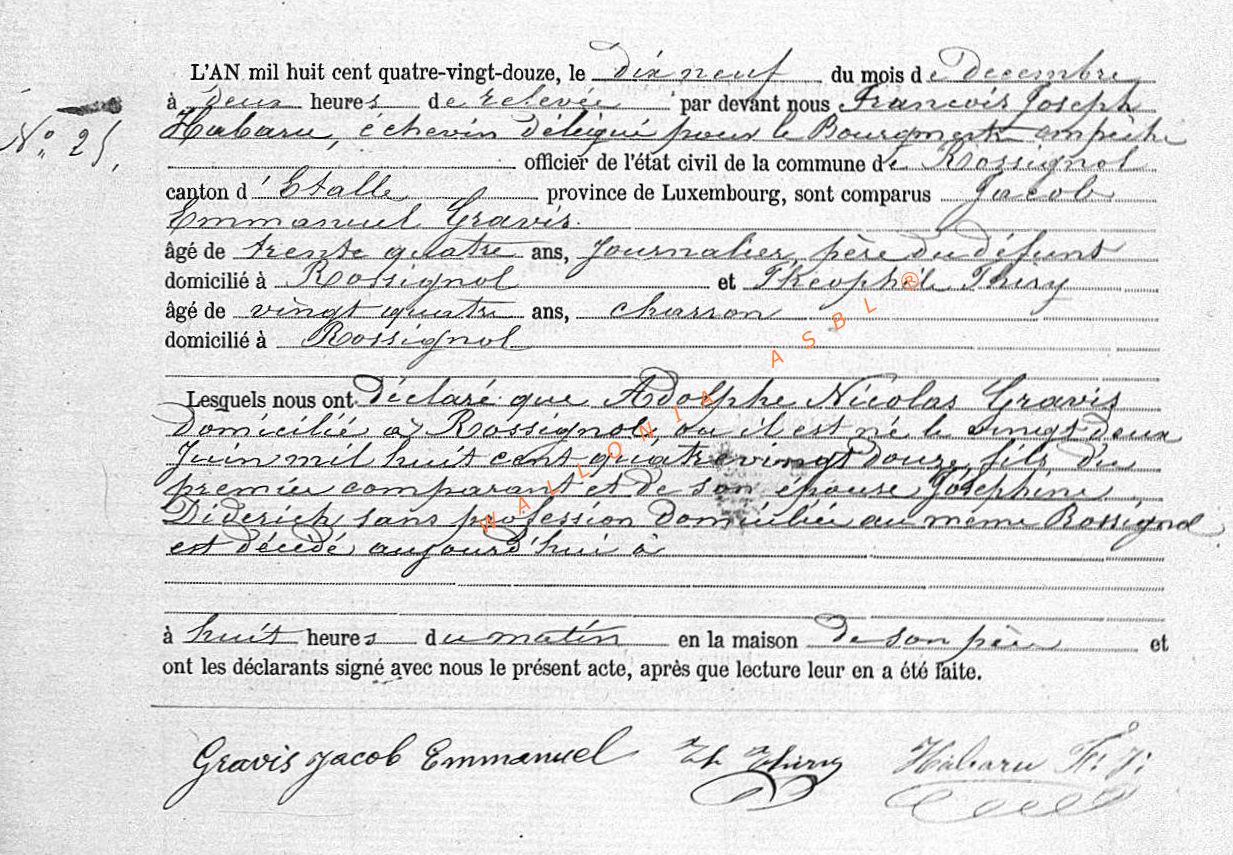 L'AN mil huit cent quatre-vingt-douze, le dix neuf du mois de Decembre
à deux heures de relevée par devant nous Francois Joseph
N° 25, Habaru, échevin délégué pour le Bourgmestre empêché
officier de l'état civil de la commune de Rossignol
canton d'Etalle province de Luxembourg, sont comparus Jacob
Emmanuel Gravis.
âgé de trente quatre ans, Journalier, père du défunt
domicilié à Rossignol et Théophile Thiry
âgé de vingt quatre ans, charron
domicilié à Rossignol
Lesquels nous ont déclaré que Adolphe Nicolas Gravis
Domicilié à Rossignol, ou il est né le vingt deux
Juin mil huit cent quatrevingt douze, fils du
premier comparant et de son épouse Joséphine
Diderich, sans profession domiciliée au même Rossignol
est décédé aujourd'hui à
à huit heures du matin en la maison de son père et
ont les déclarants signé avec nous le présent acte, après que lecture leur en a été faite.
Gravis Jacob Emmanuel Th Thiry Habaru F. J.
WALLONIA ASBL ®